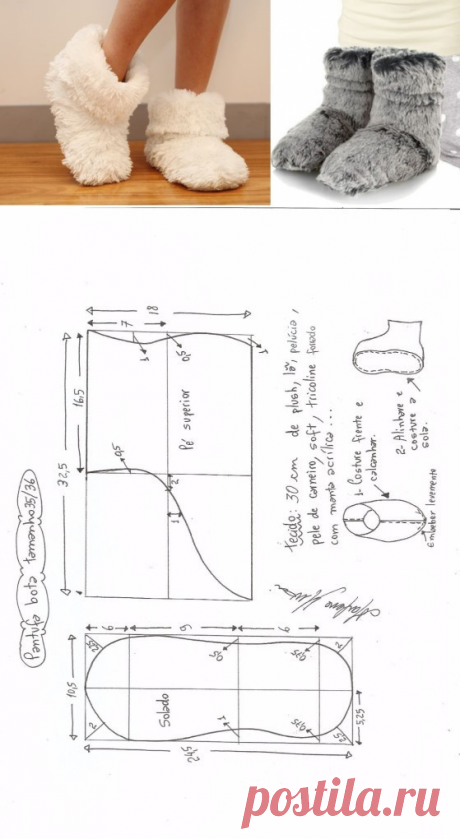 Pantufa bota tamanho 35/36
32,5
16,5
18
7
1
0,5
1
Pé superior
0,5
2
1
tecido: 30 cm de plush, lã, pelúcia,
pele de carneiro, soft, tricoline forrado
com manta acrílica ...
1- Costure frente e
calcanhar.
2- Alinhave e
costure a
sola.
Embeber levemente
10,5
6
9
9
2,5
2
0,5
0,75
2
Solado
1
0,75
2,5
5,25
24,5
postila.ru